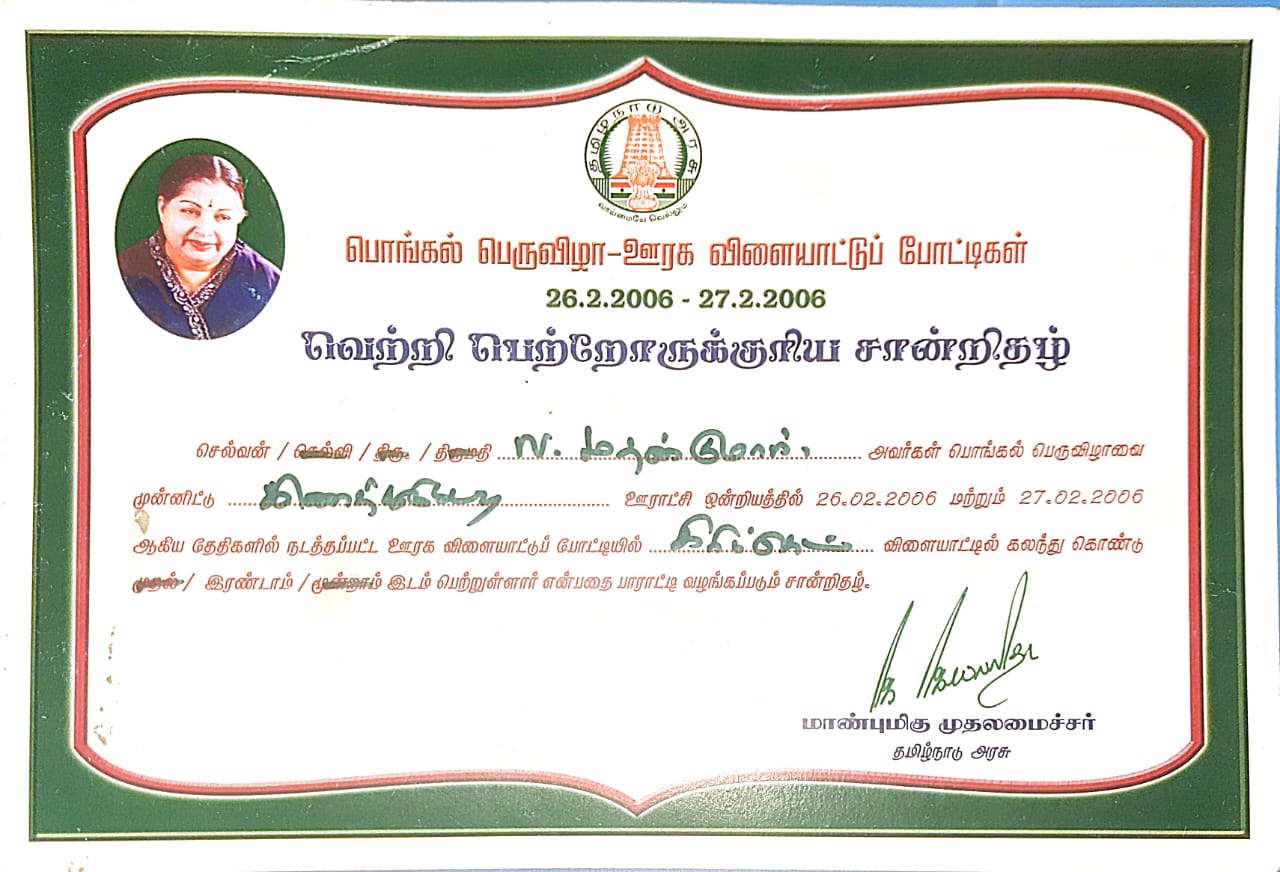 தமிழ்நாடு அரசு
வாய்மையே வெல்லும்
பொங்கல் பெருவிழா-ஊரக விளையாட்டுப் போட்டிகள்
26.2.2006 - 27.2.2006
வெற்றி பெற்றோருக்குரிய சான்றிதழ்
செல்வன் / செல்வி / திரு. / திருமதி N. மதன்குமார். அவர்கள் பொங்கல் பெருவிழாவை
முன்னிட்டு ஊராட்சி ஒன்றியத்தில் 26.02.2006 மற்றும் 27.02.2006
ஆகிய தேதிகளில் நடத்தப்பட்ட ஊரக விளையாட்டுப் போட்டியில் விளையாட்டில் கலந்து கொண்டு
முதல் / இரண்டாம் / மூன்றாம் இடம் பெற்றுள்ளார் என்பதை பாராட்டி வழங்கப்படும் சான்றிதழ்.
மாண்புமிகு முதலமைச்சர்
தமிழ்நாடு அரசு